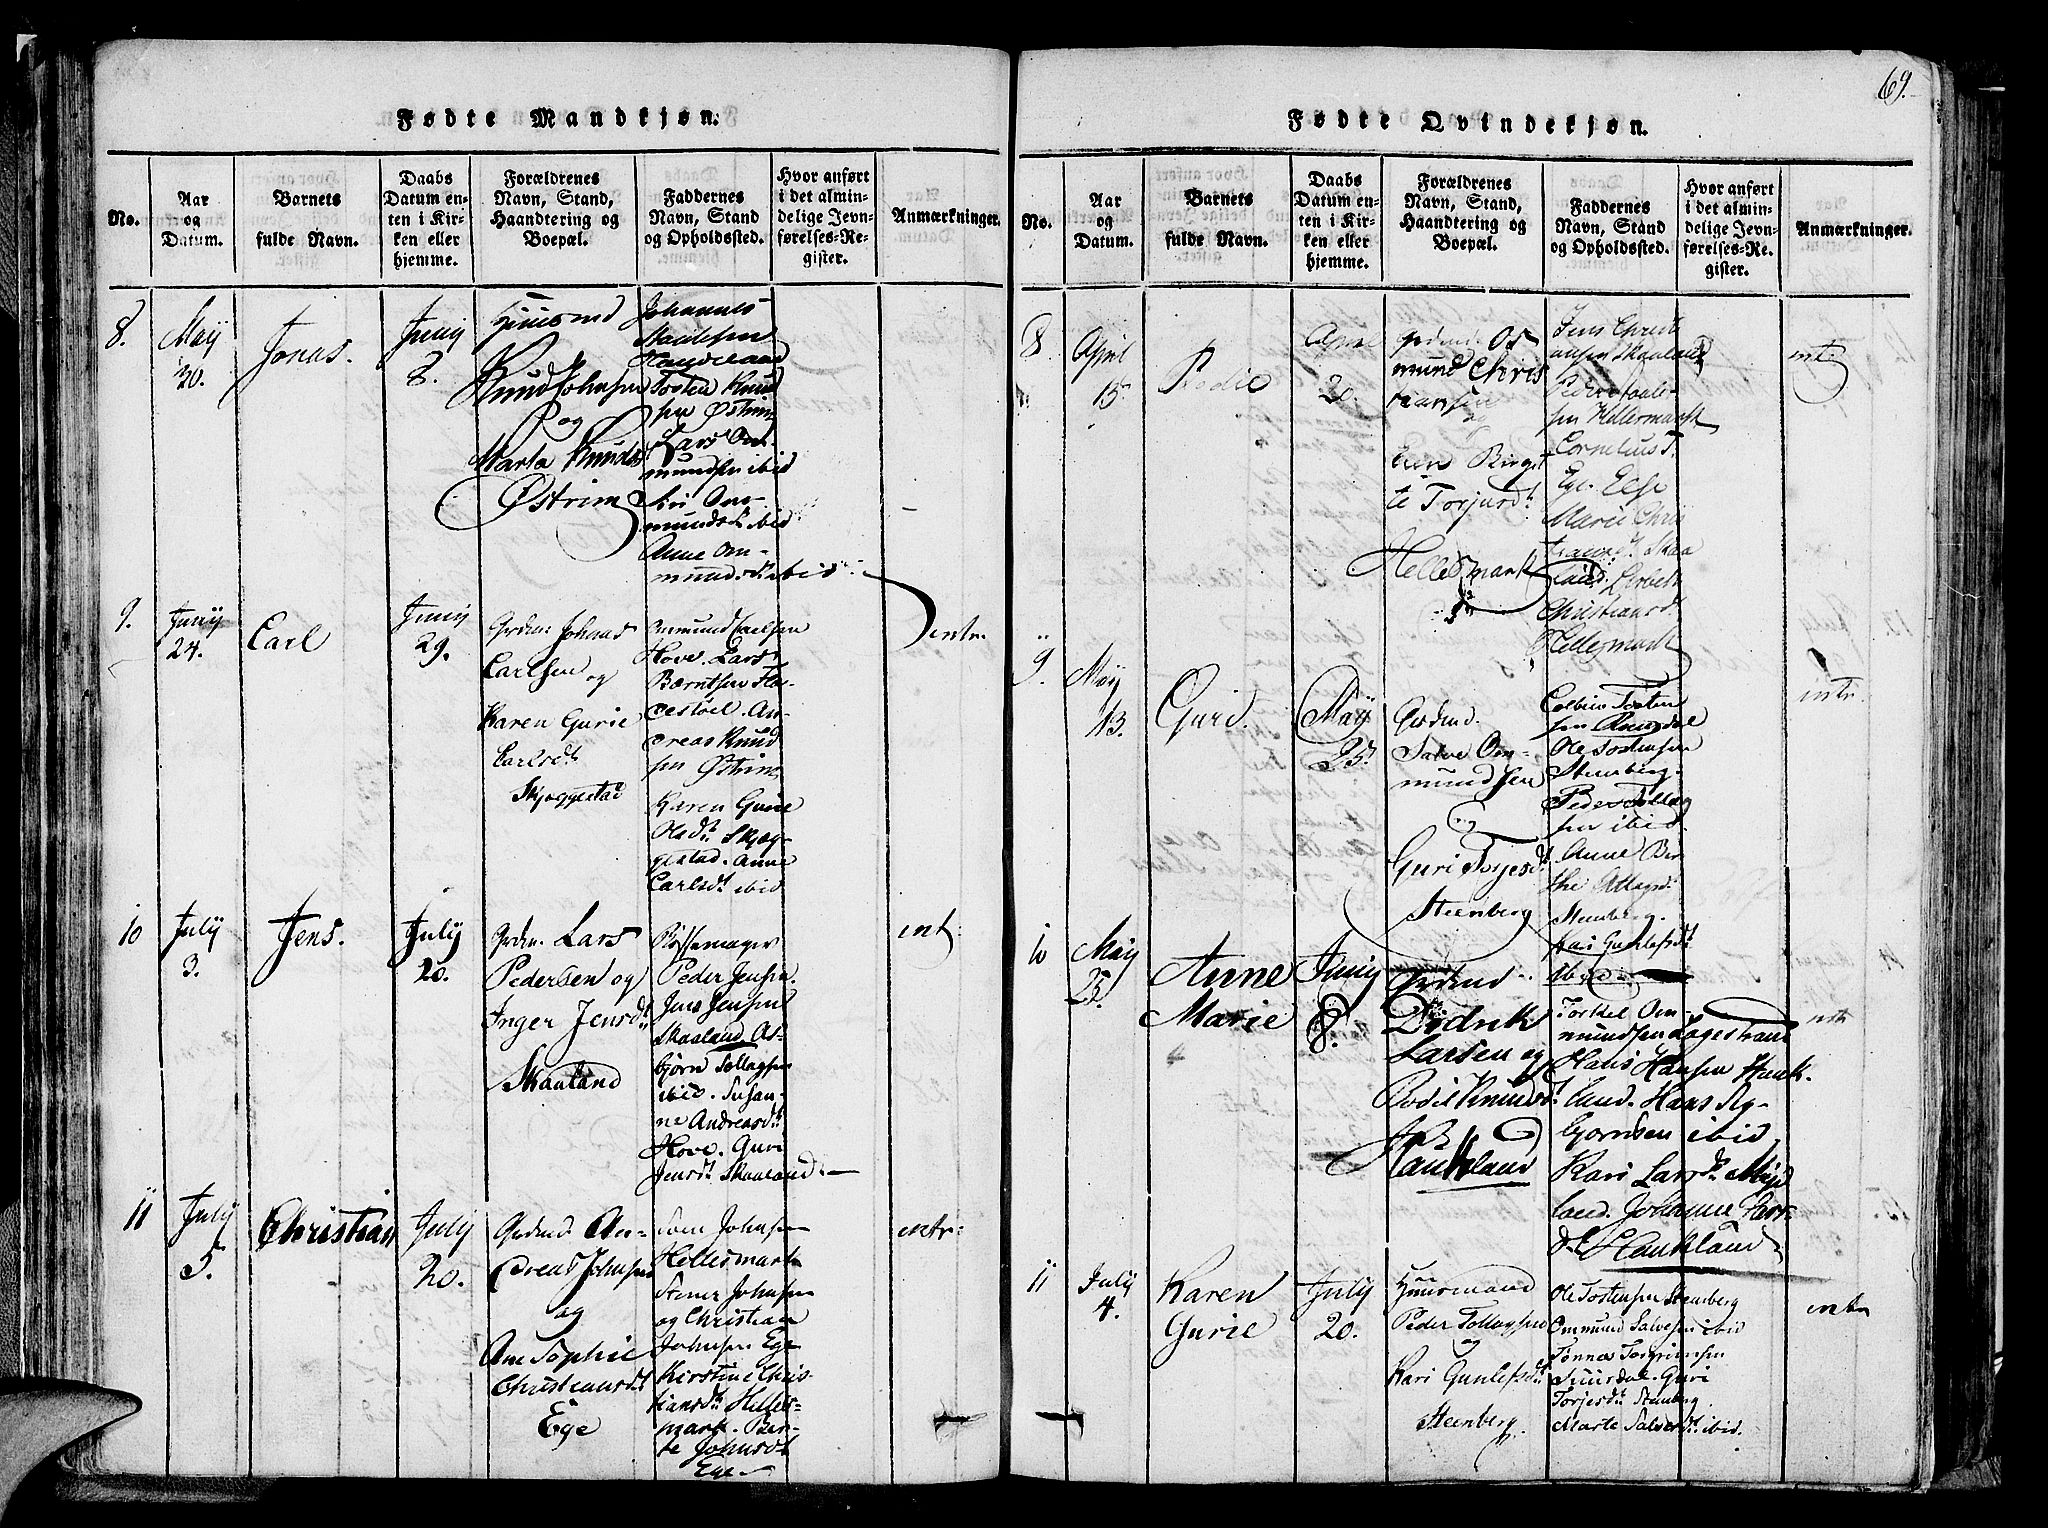 69.
Fødte Mandkjøn.
No.
Aar
og
Datum.
Barnets
fulde Navn.
Daabs
Datum en-
ten i Kir-
ken eller
hjemme.
Forældrenes
Navn, Stand,
Haandtering og
Boepæl.
Faddernes
Navn, Stand
og Opholdssted.
Hvor anført
i det almin-
delige Jevn-
førelses-Re-
gister.
Anmærkninger.
8.
Maÿ
30.
Jonas.
Junij
8.
Huusmd
Knud Johnsen
og
Marta Knudsd
Østrim
Johannes
Tosten Knud
sen Østrim
Lars Om
mundsen ibid
Siri Om-
mundsd ibid
Anne Om-
mundsd ibid
9.
Junij
24.
Carl
Junij
29.
Grdm. Johnas
Carlsen og
Karen Gurie
Carlsdt
Skjoggestad
Ommund Carlsen
Hove. Lars
Berntsen
An-
dreas Knud
sen Østrim
Karen Gurie
Olsdt Skjog-
gestad. Anne
Carlsdt ibid
intr.
10
July
3.
Jens.
July
20.
Grdm. Lars
Pedersen og
Inger Jensdt
Skaaland
Peder Jensen
Jens Jensen
Skaaland As-
bjørn Tollagsen
ibid. Susan-
ne Andreasdt
Hove. Guri
Jensdt Skaaland.
intr.
11
July
5.
Christian
July
20.
Grdmd An-
dreas Johnsen
og
Ane Sophie
Christiansdt
Ege
Johnsen
Hellesmark
Johnsen
og Christian
Johnsen Ege
Kirstine Chris-
tiansdt Helles-
mark. Ber-
te Johnsdt
Ege
intr.
Fødte Qvindekjøn.
No.
Aar
og
Datum.
Barnets
fulde Navn.
Daabs
Datum en-
ten i Kir-
ken eller
hjemme.
Forældrenes
Navn, Stand,
Haandtering og
Boepæl.
Faddernes
Navn, Stand
og Opholdssted.
Hvor anført
i det almin-
delige Jevn-
førelses-Re-
gister.
Anmærkninger.
8
April
15.
April
20.
Grdmd. Os
mund Chris
tiansen
og
Birgit
te Torjusdt
Hellesmark
Jens Christ
iansen Skaaland
Peder
sen Hellesmark
Cornelius T.
Ege. Else
Marie Chris
tiansdt Skaa
land.
Christiansdt
Hellesmark
intr.
9.
Maÿ
13.
Gurid.
Maÿ
25.
Grdmd.
Salve Om-
mundsen
og
Guri Torjesdt
Steenberg
Tosten
sen
Ole Tostensen
Steenberg.
Peder Tollag
sen ibid.
Anne Ber
the
Steenberg.
Kari Gunlefsdt
ibid
intr.
10
May
25.
Anne
Marie
Junij
8.
Grdmd
Didrik
Larsen og
Bodil Knudsdt
Haukland
Torkel Om
mundsen Lagestrand
Hans Hansen Hauk-
land. Hans As-
bjornsen ibid
Kari Larsdt Mÿd
land. Johanne Lars
dt Haukland
intr
11
July
4.
Karen
Gurie
July
20.
Huusmand
Peder Tollagsen
og
Kari Gunlefsdt
Steenberg
Ole Tostensen Steenberg
Ommund Salvesen ibid
Tønnes Torgrimsen
Guri
Torjesdt Steenberg
Marte Salvesdt ibid.
intr